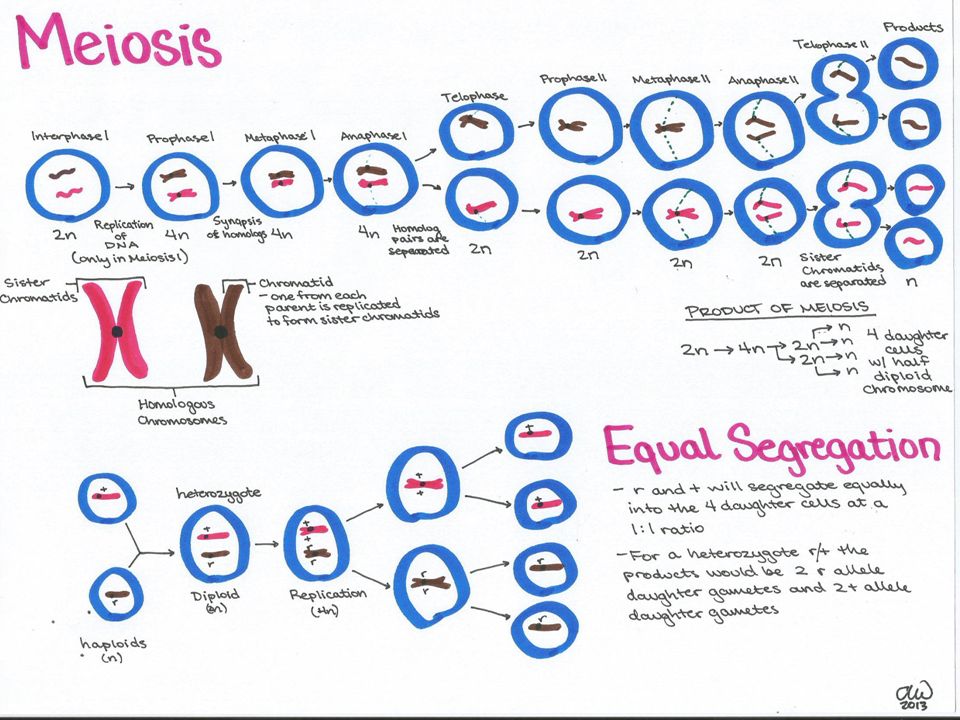 Meiosis
Interphase I
Prophase I
Metaphase I
Anaphase I
Telophase
Prophase II
Metaphase II
Anaphase II
Telophase II
Products
2n
Replication
of
DNA
(only in Meiosis I)
4n
Synapsis
of homologs
4n
4n
Homolog
pairs are
seperated
2n
2n
2n
2n
Sister
Chromatids
are separated
n
Sister
Chromatids
Chromatid
- one from each
parent is replicated
to form sister chromatids
Homologous
Chromosomes
PRODUCT OF MEIOSIS
2n → 4n → 2n → n
→ n
→ 2n → n
→ n
4 daughter
cells
w/ half
diploid
chromosome
Equal Segregation
- r and + will segregate equally
into the 4 daughter cells at a
1:1 ratio
- For a heterozygote r/+ the
products would be 2 r allele
daughter gametes and 2+ allele
daughter gametes
+
r
haploids
(n)
heterozygote
+
r
Diploid
(2n)
+
+
r
r
Replication
(4n)
+
+
r
r
+
+
r
r
2013